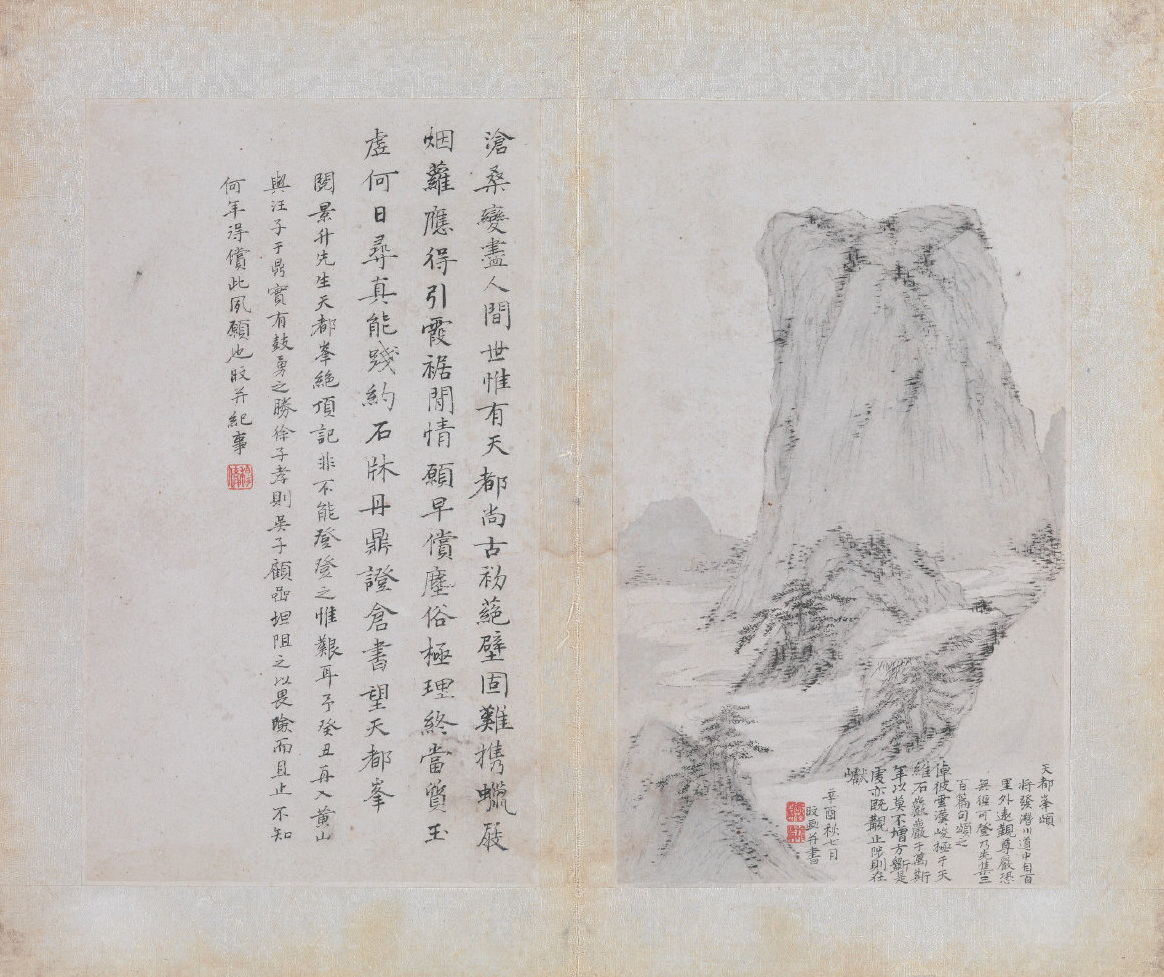 天都峯頌
將發湯川道中自百
里外遠觀尊嚴恐
無從可登乃先集三
百篇句頌之
倬彼雲漢峻極于天
維石巖巖于萬斯
年以莫不增方斲是
虔亦既觀止陟則在
巘
辛酉秋七月
旼画并書
滄桑變盡人間世惟有天都尚古初蒕壁固難携蠟屐
烟蘿應得引霞裾閒情願早償塵俗極理終當質玉
虛何日尋真能踐約石牀丹鼎證倉書望天都峯
閱景升先生天都峯絶頂記非不能登登之惟艱耳予癸丑再入黄山
與汪子于鼎實有鼓勇之勝徐子孝則吳子顧嵒坦阻之以畏險而且止不知
何年得償此夙願也旼并紀事